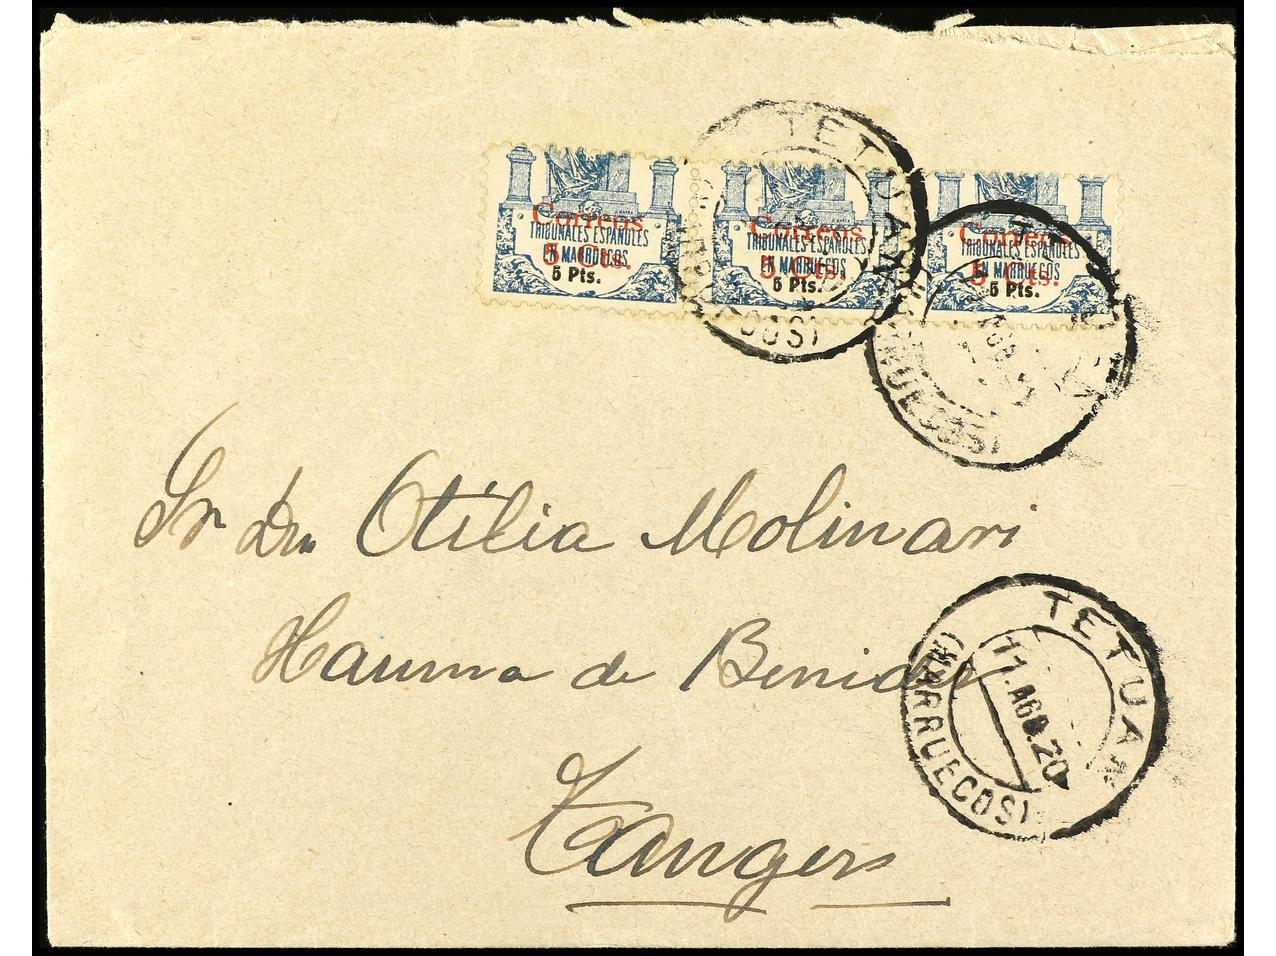 Correos
TRIBUNALES ESPAÑOLES
EN MARRUECOS
5 Cts.
5 Pts.
Correos
TRIBUNALES ESPAÑOLES
EN MARRUECOS
5 Cts.
5 Pts.
Correos
TRIBUNALES ESPAÑOLES
EN MARRUECOS
5 Cts.
5 Pts.
TETUAN
Otilia Molinari
Tanger
TETUAN
11.AGO.20
(MARRUECOS)